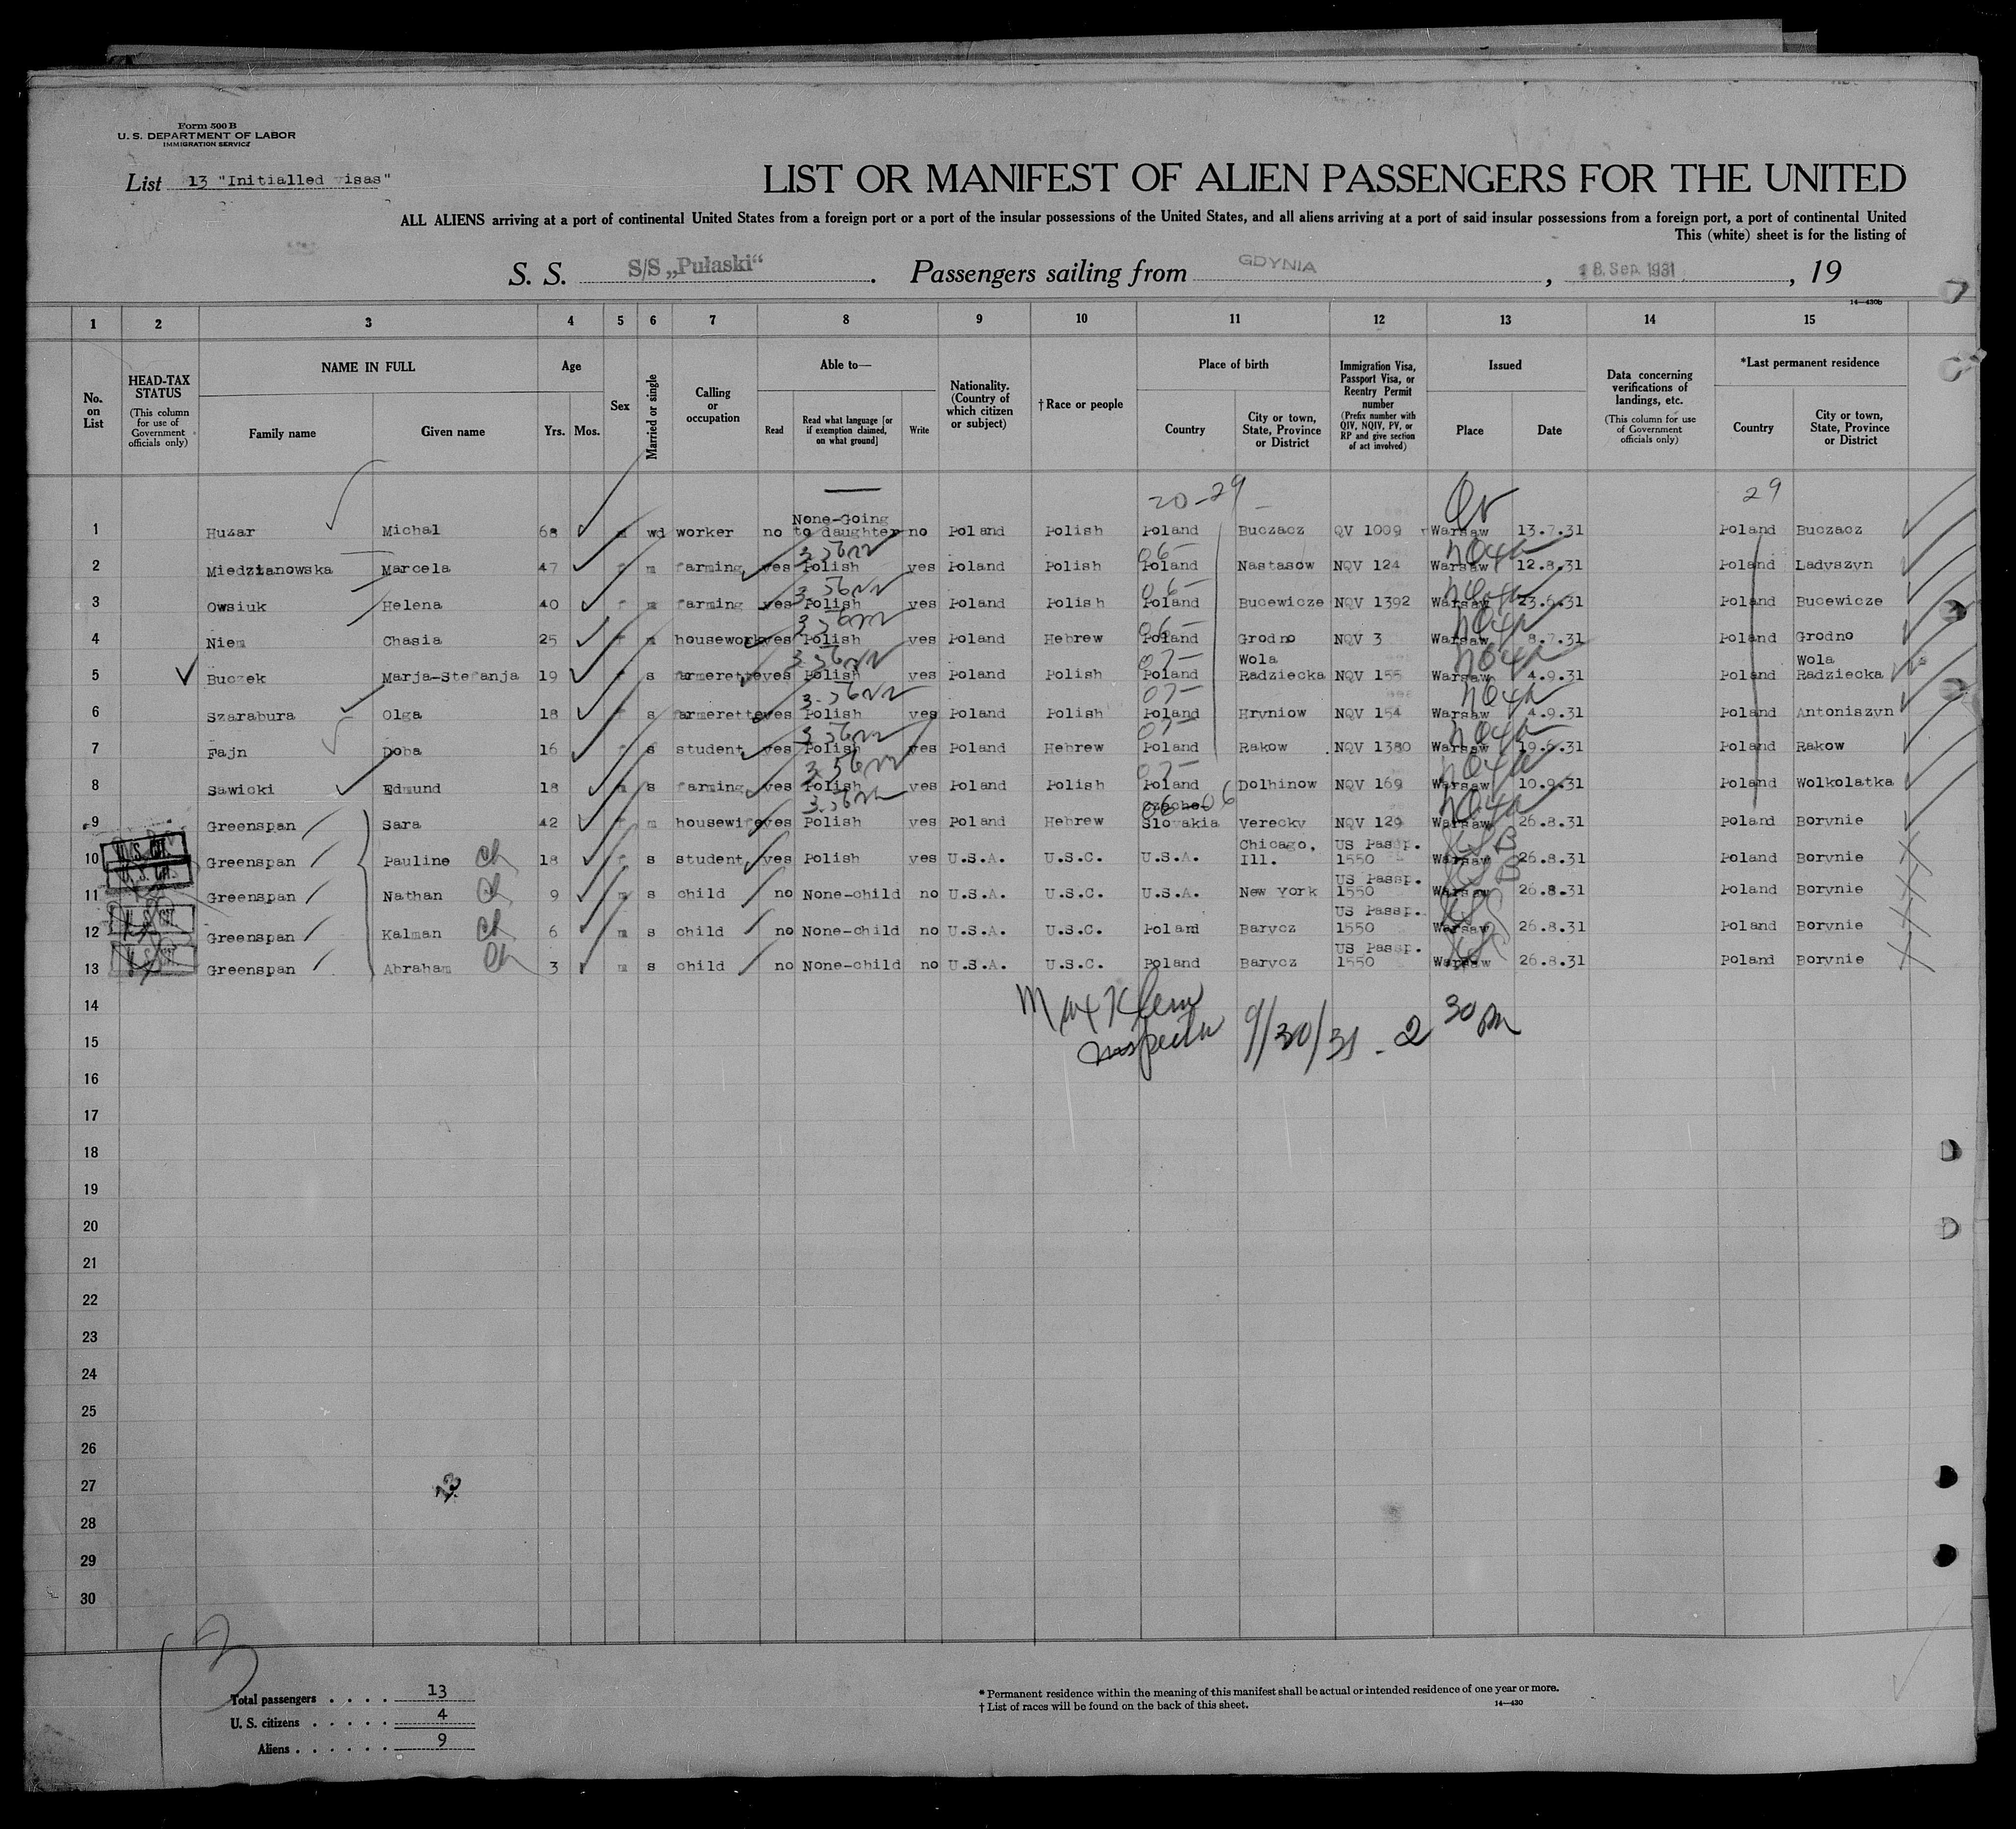 Form 500 B
U. S. DEPARTMENT OF LABOR
IMMIGRATION SERVICE
List 13 "Initialled visas"
LIST OR MANIFEST OF ALIEN PASSENGERS FOR THE UNITED
ALL ALIENS arriving at a port of continental United States from a foreign port or a port of the insular possessions of the United States, and all aliens arriving at a port of said insular possessions from a foreign port, a port of continental United
This (white) sheet is for the listing of
S. S. S/S „Pułaski“. Passengers sailing from GDYNIA, 18. Sep. 1931, 19
14—430b
1 2 3 4 5 6 7 8 9 10 11 12 13 14 15
No. on List
HEAD-TAX STATUS (This column for use of Government officials only)
NAME IN FULL
Family name Given name
Age
Yrs. Mos.
Sex
Married or single
Calling or occupation
Able to—
Read Read what language [or if exemption claimed, on what ground] Write
Nationality. (Country of which citizen or subject)
† Race or people
Place of birth
Country City or town, State, Province or District
Immigration Visa, Passport Visa, or Reentry Permit number (Prefix number with QIV, NQIV, PV, or RP and give section of act involved)
Issued
Place Date
Data concerning verifications of landings, etc. (This column for use of Government officials only)
*Last permanent residence
Country City or town, State, Province or District
20-29 QV 29
1 Huzar Michal 68 m wd worker no None-Going to daughter no Poland Polish Poland Buczacz QV 1009 Warsaw 13.7.31 Poland Buczacz
2 Miedzianowska Marcela 47 f m farming yes Polish yes Poland Polish Poland Nastasow NQV 124 Warsaw 12.8.31 Poland Ladyszyn
3 Owsiuk Helena 40 f m farming yes Polish yes Poland Polish Poland Bucewicze NQV 1392 Warsaw 23.6.31 Poland Bucewicze
4 Niem Chasia 25 f m housework yes Polish yes Poland Hebrew Poland Grodno NQV 3 Warsaw 8.7.31 Poland Grodno
5 Buczek Marja-Stefanja 19 f s farmerette yes Polish yes Poland Polish Poland Wola Radziecka NQV 155 Warsaw 4.9.31 Poland Wola Radziecka
6 Szarabura Olga 18 f s farmerette yes Polish yes Poland Polish Poland Hryniow NQV 154 Warsaw 4.9.31 Poland Antoniszyn
7 Fajn Doba 16 f s student yes Polish yes Poland Hebrew Poland Rakow NQV 1380 Warsaw 19.6.31 Poland Rakow
8 Sawicki Edmund 18 m s farming yes Polish yes Poland Polish Poland Dolhinow NQV 169 Warsaw 10.9.31 Poland Wolkolatka
9 Greenspan Sara 42 f m housewife yes Polish yes Poland Hebrew Czecho-Slovakia Verecky NQV 129 Warsaw 26.8.31 Poland Borynie
10 Greenspan Pauline 18 f s student yes Polish yes U.S.A. U.S.C. U.S.A. Chicago, Ill. US Passp. 1550 Warsaw 26.8.31 Poland Borynie
11 Greenspan Nathan 9 m s child no None-child no U.S.A. U.S.C. U.S.A. New York US Passp. 1550 Warsaw 26.8.31 Poland Borynie
12 Greenspan Kalman 6 m s child no None-child no U.S.A. U.S.C. Poland Barycz US Passp. 1550 Warsaw 26.8.31 Poland Borynie
13 Greenspan Abraham 3 m s child no None-child no U.S.A. U.S.C. Poland Barycz US Passp. 1550 Warsaw 26.8.31 Poland Borynie
14
Max Klein
Inspector 9/30/31 - 2 30 pm
15
16
17
18
19
20
21
22
23
24
25
26
27
28
29
30
13
Total passengers . . . . 13
U. S. citizens . . . . . 4
Aliens . . . . . . 9
* Permanent residence within the meaning of this manifest shall be actual or intended residence of one year or more.
† List of races will be found on the back of this sheet. 14—430